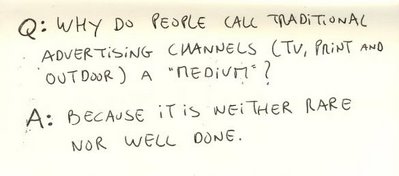 Q: WHY DO PEOPLE CALL TRADITIONAL
ADVERTISING CHANNELS (TV, PRINT AND
OUTDOOR) A "MEDIUM"?
A: BECAUSE IT IS NEITHER RARE
NOR WELL DONE.